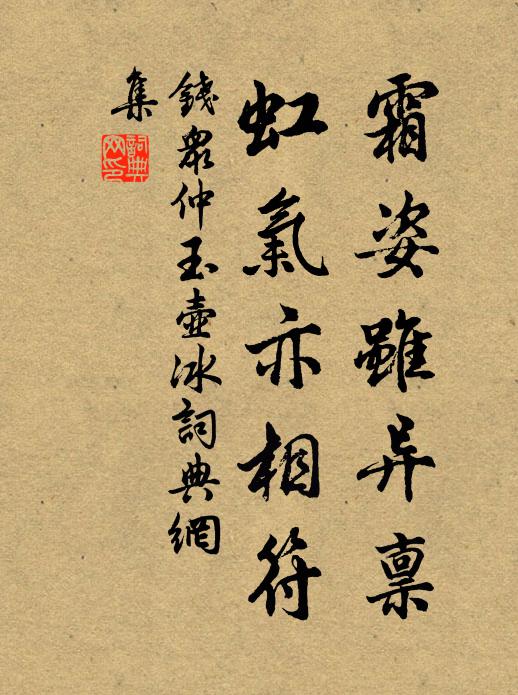 霜姿雖异禀
虹氣亦相符
錢眾仲玉壺冰詞典網
集
詞典網印